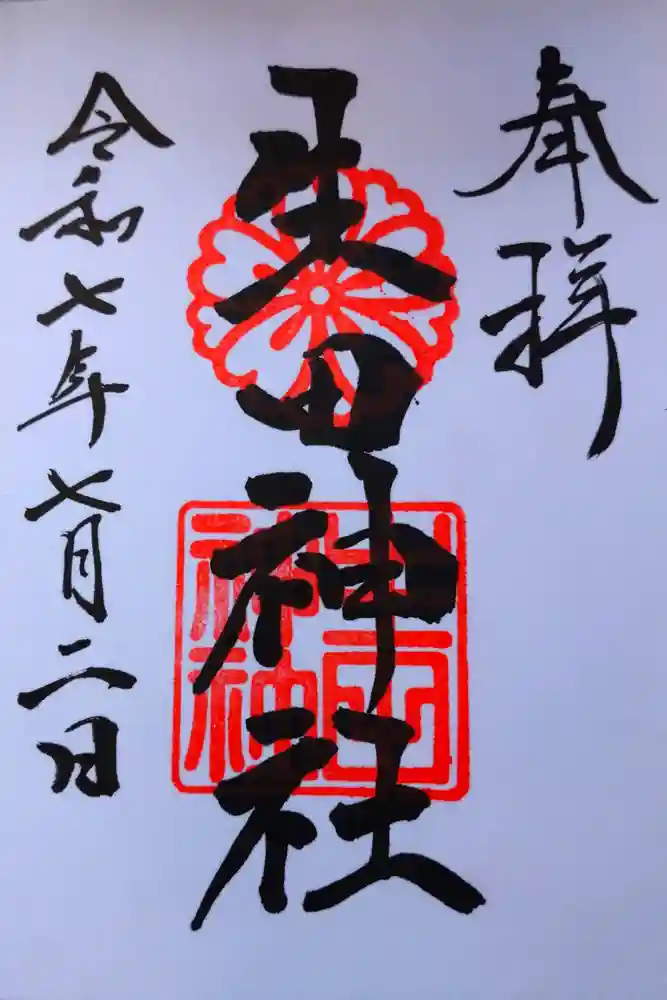 奉拝
田神社
令和七年七月二日